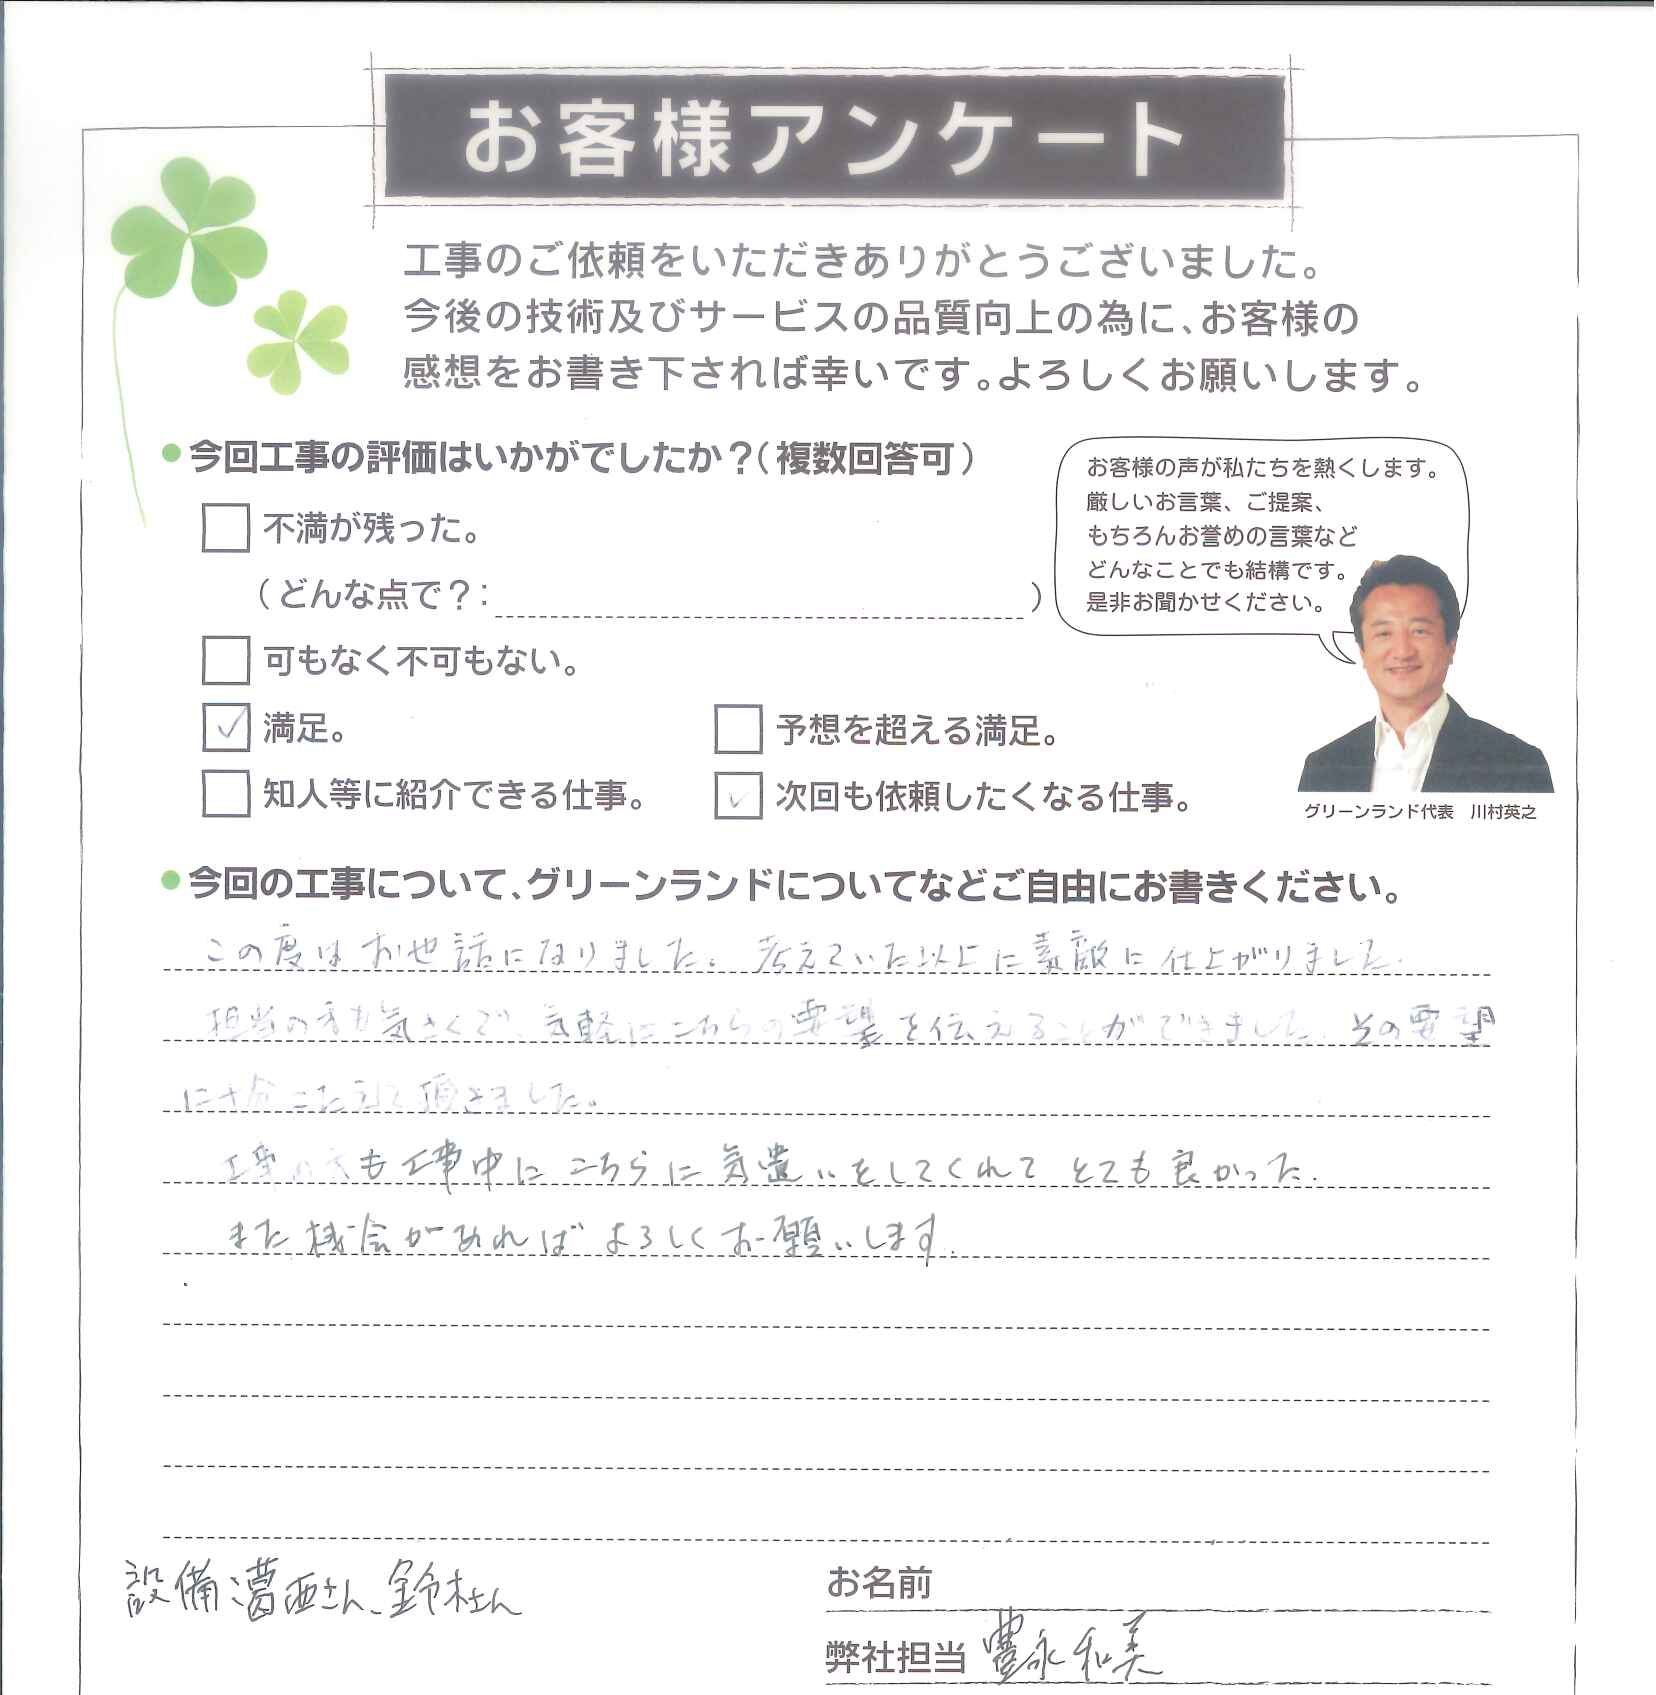 お客様アンケート
工事のご依頼をいただきありがとうございました。
今後の技術及びサービスの品質向上の為に、お客様の
感想をお書き下されば幸いです。よろしくお願いします。
今回工事の評価はいかがでしたか？(複数回答可)
不満が残った。
(どんな点で？: )
可もなく不可もない。
満足。
予想を超える満足。
知人等に紹介できる仕事。
次回も依頼したくなる仕事。
お客様の声が私たちを熱くします。
厳しいお言葉、ご提案、
もちろんお誉めの言葉など
どんなことでも結構です。
是非お聞かせください。
グリーンランド代表 川村英之
今回の工事について、グリーンランドについてなどご自由にお書きください。
この度はお世話になりました。考えていた以上に素敵に仕上がりました。
担当の方も気さくで、気軽にこちらの要望を伝えることができました。その要望
に十分こたえて頂きました。
工事の方も工事中にこちらに気遣いをしてくれてとても良かった。
また機会があればよろしくお願いします。
設備 葛西さん、鈴木さん
お名前
弊社担当 豊永和美